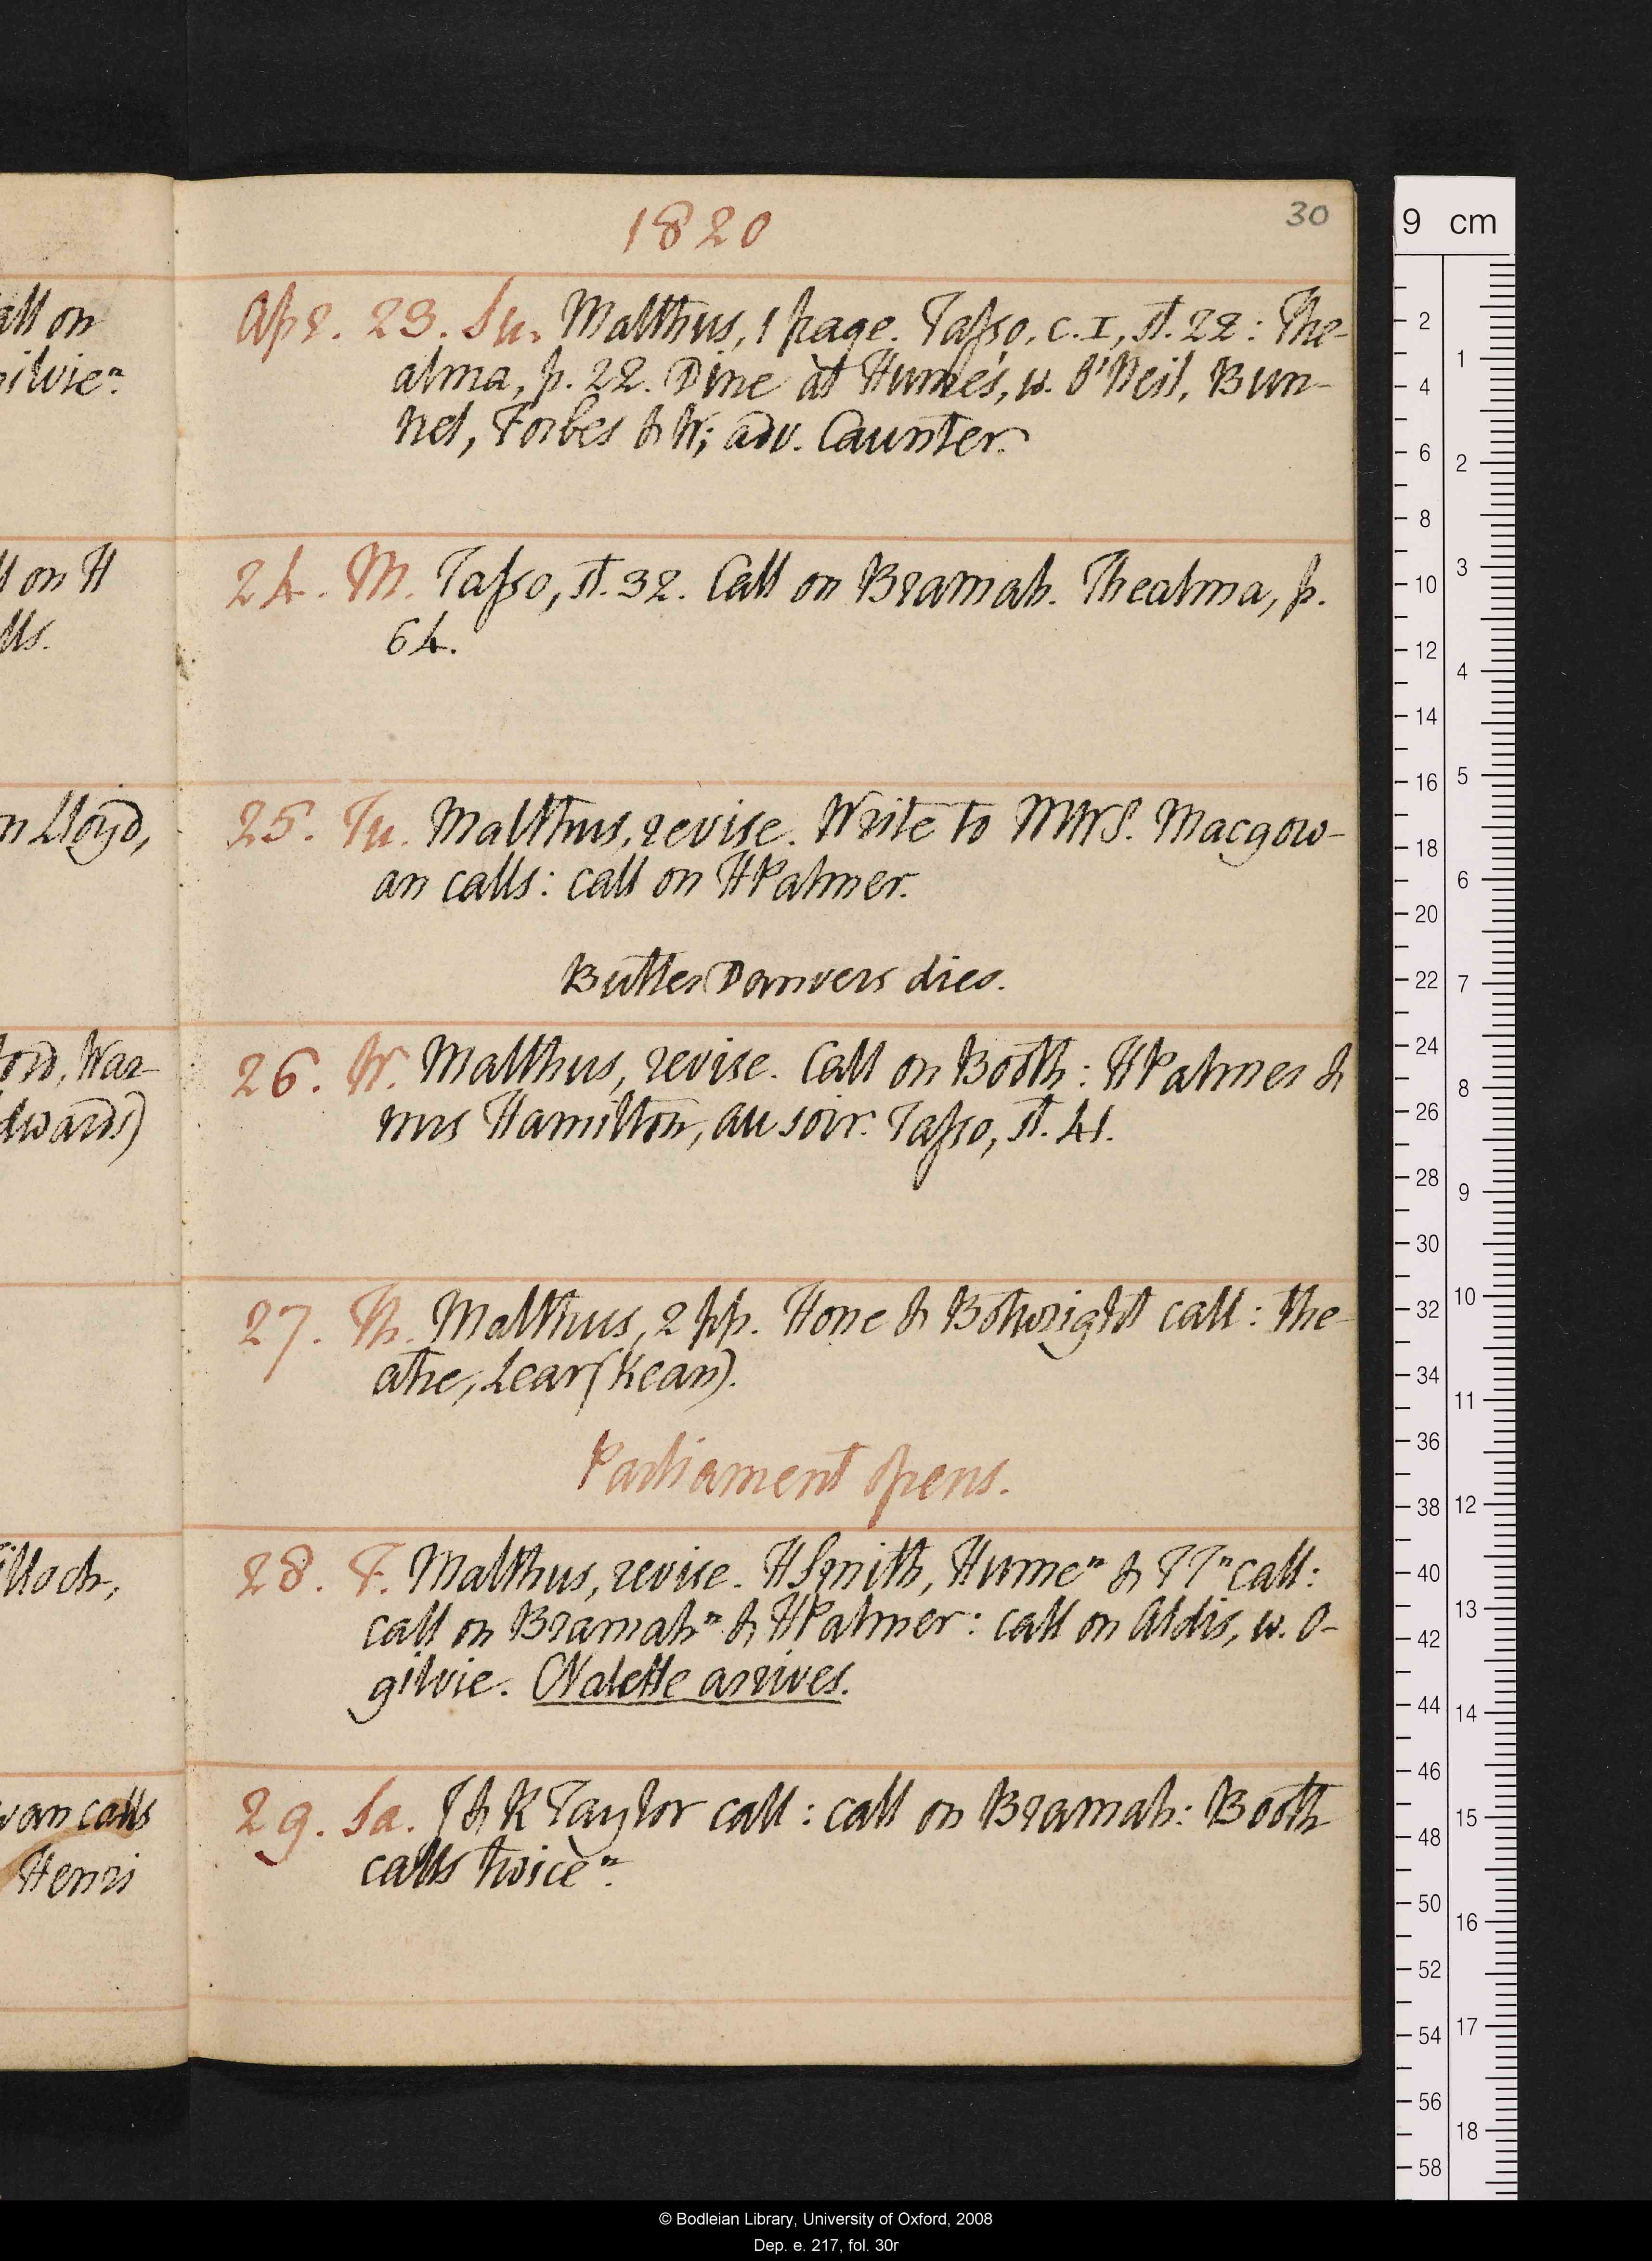 1820
30
Apr. 23. Su. Malthus, 1 page. Tasso, c. I, st. 22: The-
alma, p. 22. Dine at Hume's, w. O'Neil, Bun-
nel, Forbes & W; adv. Caunter.
24. M. Tasso, st. 32. Call on Bramah. Thealma, p.
64.
25. Tu. Malthus, revise. Write to MWS. Macgow-
an calls: call on HPalmer.
Butler Danvers dies.
26. W. Malthus, revise. Call on Booth: HPalmer &
mrs Hamilton, au soir. Tasso, st. 41.
27. Th. Malthus, 2 pp. Hone & Botwright call: the-
atre, Lear (Kean).
Parliament opens.
28. F. Malthus, revise. HSmith, Hume n & TT n call:
call on Bramah n & HPalmer: call on Aldis, w. O-
gilvie. Nalette arrives.
29. Sa. J & R Taylor call: call on Bramah: Booth
calls twice n.
all on
ilvie n.
on H
lls.
n Lloyd,
ord, War-
dwards)
lloch,
wan calls
Henri
9 cm
2
4
6
8
10
12
14
16
18
20
22
24
26
28
30
32
34
36
38
40
42
44
46
48
50
52
54
56
58
1
2
3
4
5
6
7
8
9
10
11
12
13
14
15
16
17
18
© Bodleian Library, University of Oxford, 2008
Dep. e. 217, fol. 30r